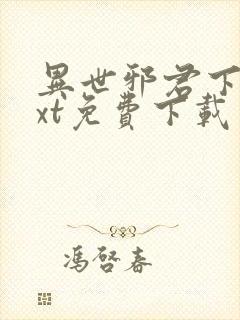 異世邪君下
xt免費下載
馮啓春